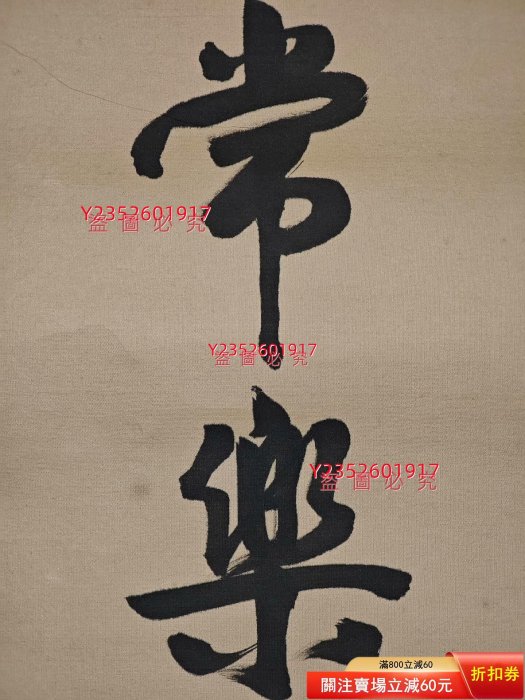 常
Y2352601917
盗圖必究
Y2352601917
盗圖必究
樂
Y2352601917
盗圖必究
滿800立減60
關注賣場立減60元
折扣券